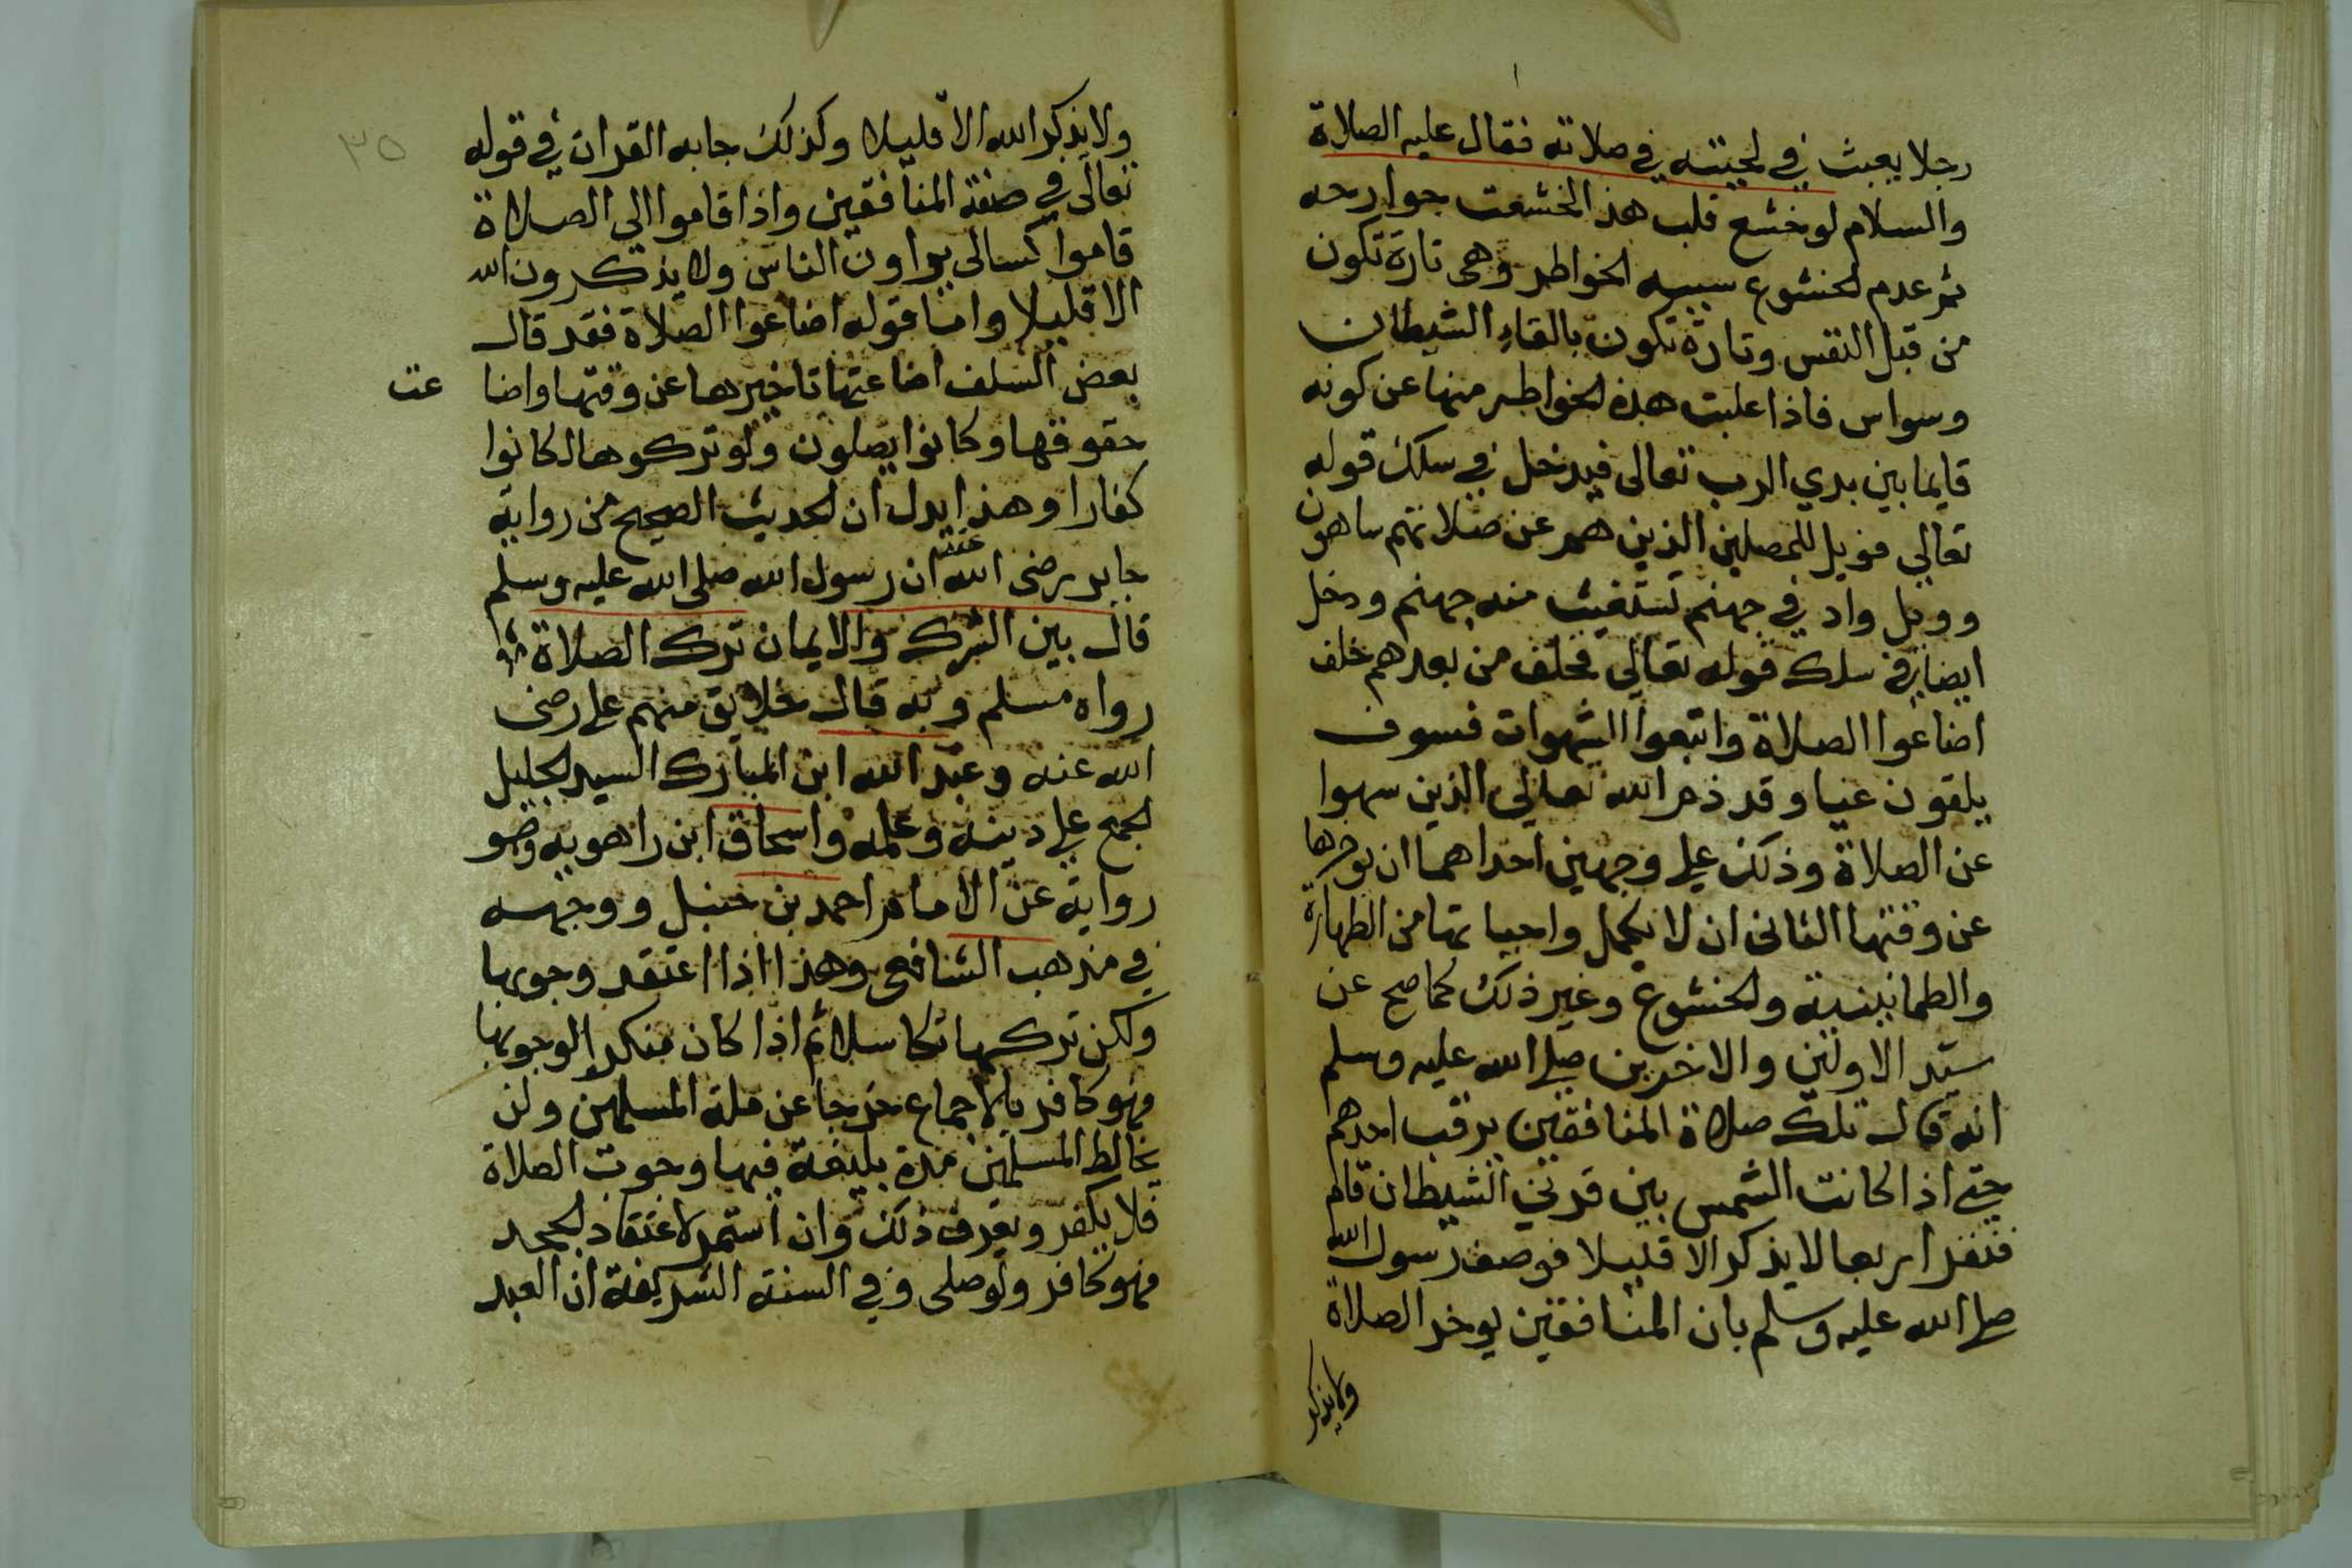 رجلا يعبث في لحيته في صلاته فقال عليه الصلاة
والسلام لو خشع قلب هذا لخشعت جوارحه
ثم عدم الخشوع سببه الخواطر وهي تارة تكون
من قبل النفس وتارة تكون بالقاء الشيطان
وسواس فاذا غلبت هذه الخواطر منها عن كونه
قايما بين يدي الرب تعالى فيدخل في سلك قوله
تعالى فويل للمصلين الذين هم عن صلاتهم ساهون
وويل واد في جهنم تستغيث منه جهنم ودخل
ايضا في سلك قوله تعالى فخلف من بعدهم خلف
اضاعوا الصلاة واتبعوا الشهوات فسوف
يلقون غيا وقد ذم الله تعالى الذين سهوا
عن الصلاة وذلك على وجهين احداهما ان يوخرها
عن وقتها الثانى ان لا يكمل واجباتها من الطهارة
والطمانينية والخشوع وغير ذلك كما صح عن
سيد الاولين والاخرين صلى الله عليه وسلم
انه قال تلك صلاة المنافقين يرقب احدهم
حتى اذا كانت الشمس بين قرني الشيطان قام
فنقر اربعا لا يذكر الا قليلا فوصف رسول الله
صلى الله عليه وسلم بان المنافقين يوخر الصلاة
ولا يذكر
٣٥
ولا يذكر الله الا قليلا وكذلك جا به القران في قوله
تعالى في صفة المنافقين واذا قاموا الى الصلاة
قاموا كسالى يراون الناس ولا يذكرون الله
الا قليلا واما قوله اضاعوا الصلاة فقد قال
بعض السلف اضاعتها تاخيرها عن وقتها واضا عت
حقوقها وكانوا يصلون ولو تركوها لكانوا
كفارا وهذا يدل ان الحديث الصحيح من رواية
جابر رضى الله عنه ان رسول الله صلى الله عليه وسلم
قال بين الشرك والايمان ترك الصلاة
رواه مسلم وبه قال خلايق منهم على رضى
الله عنه وعبد الله ابن المبارك السيد الجليل
الجمع على دينه وعلمه واسحاق ابن راهويه وهو
رواية عن الامام احمد بن حنبل ووجهه
في مذهب الشافعى وهذا اذا اعتقد وجوبها
ولكن تركها تكاسلا ثم اذا كان منكرا لوجوبها
فهو كافر بالاجماع خرجا عن ملة المسلمين ولن
يخالط المسلمين مدة بليغة فيها وجوب الصلاة
فلا يكفر ويعرف ذلك وان استمر لاعتقاد الجحد
فهو كافر ولو صلى وفي السنة الشريفة ان العبد